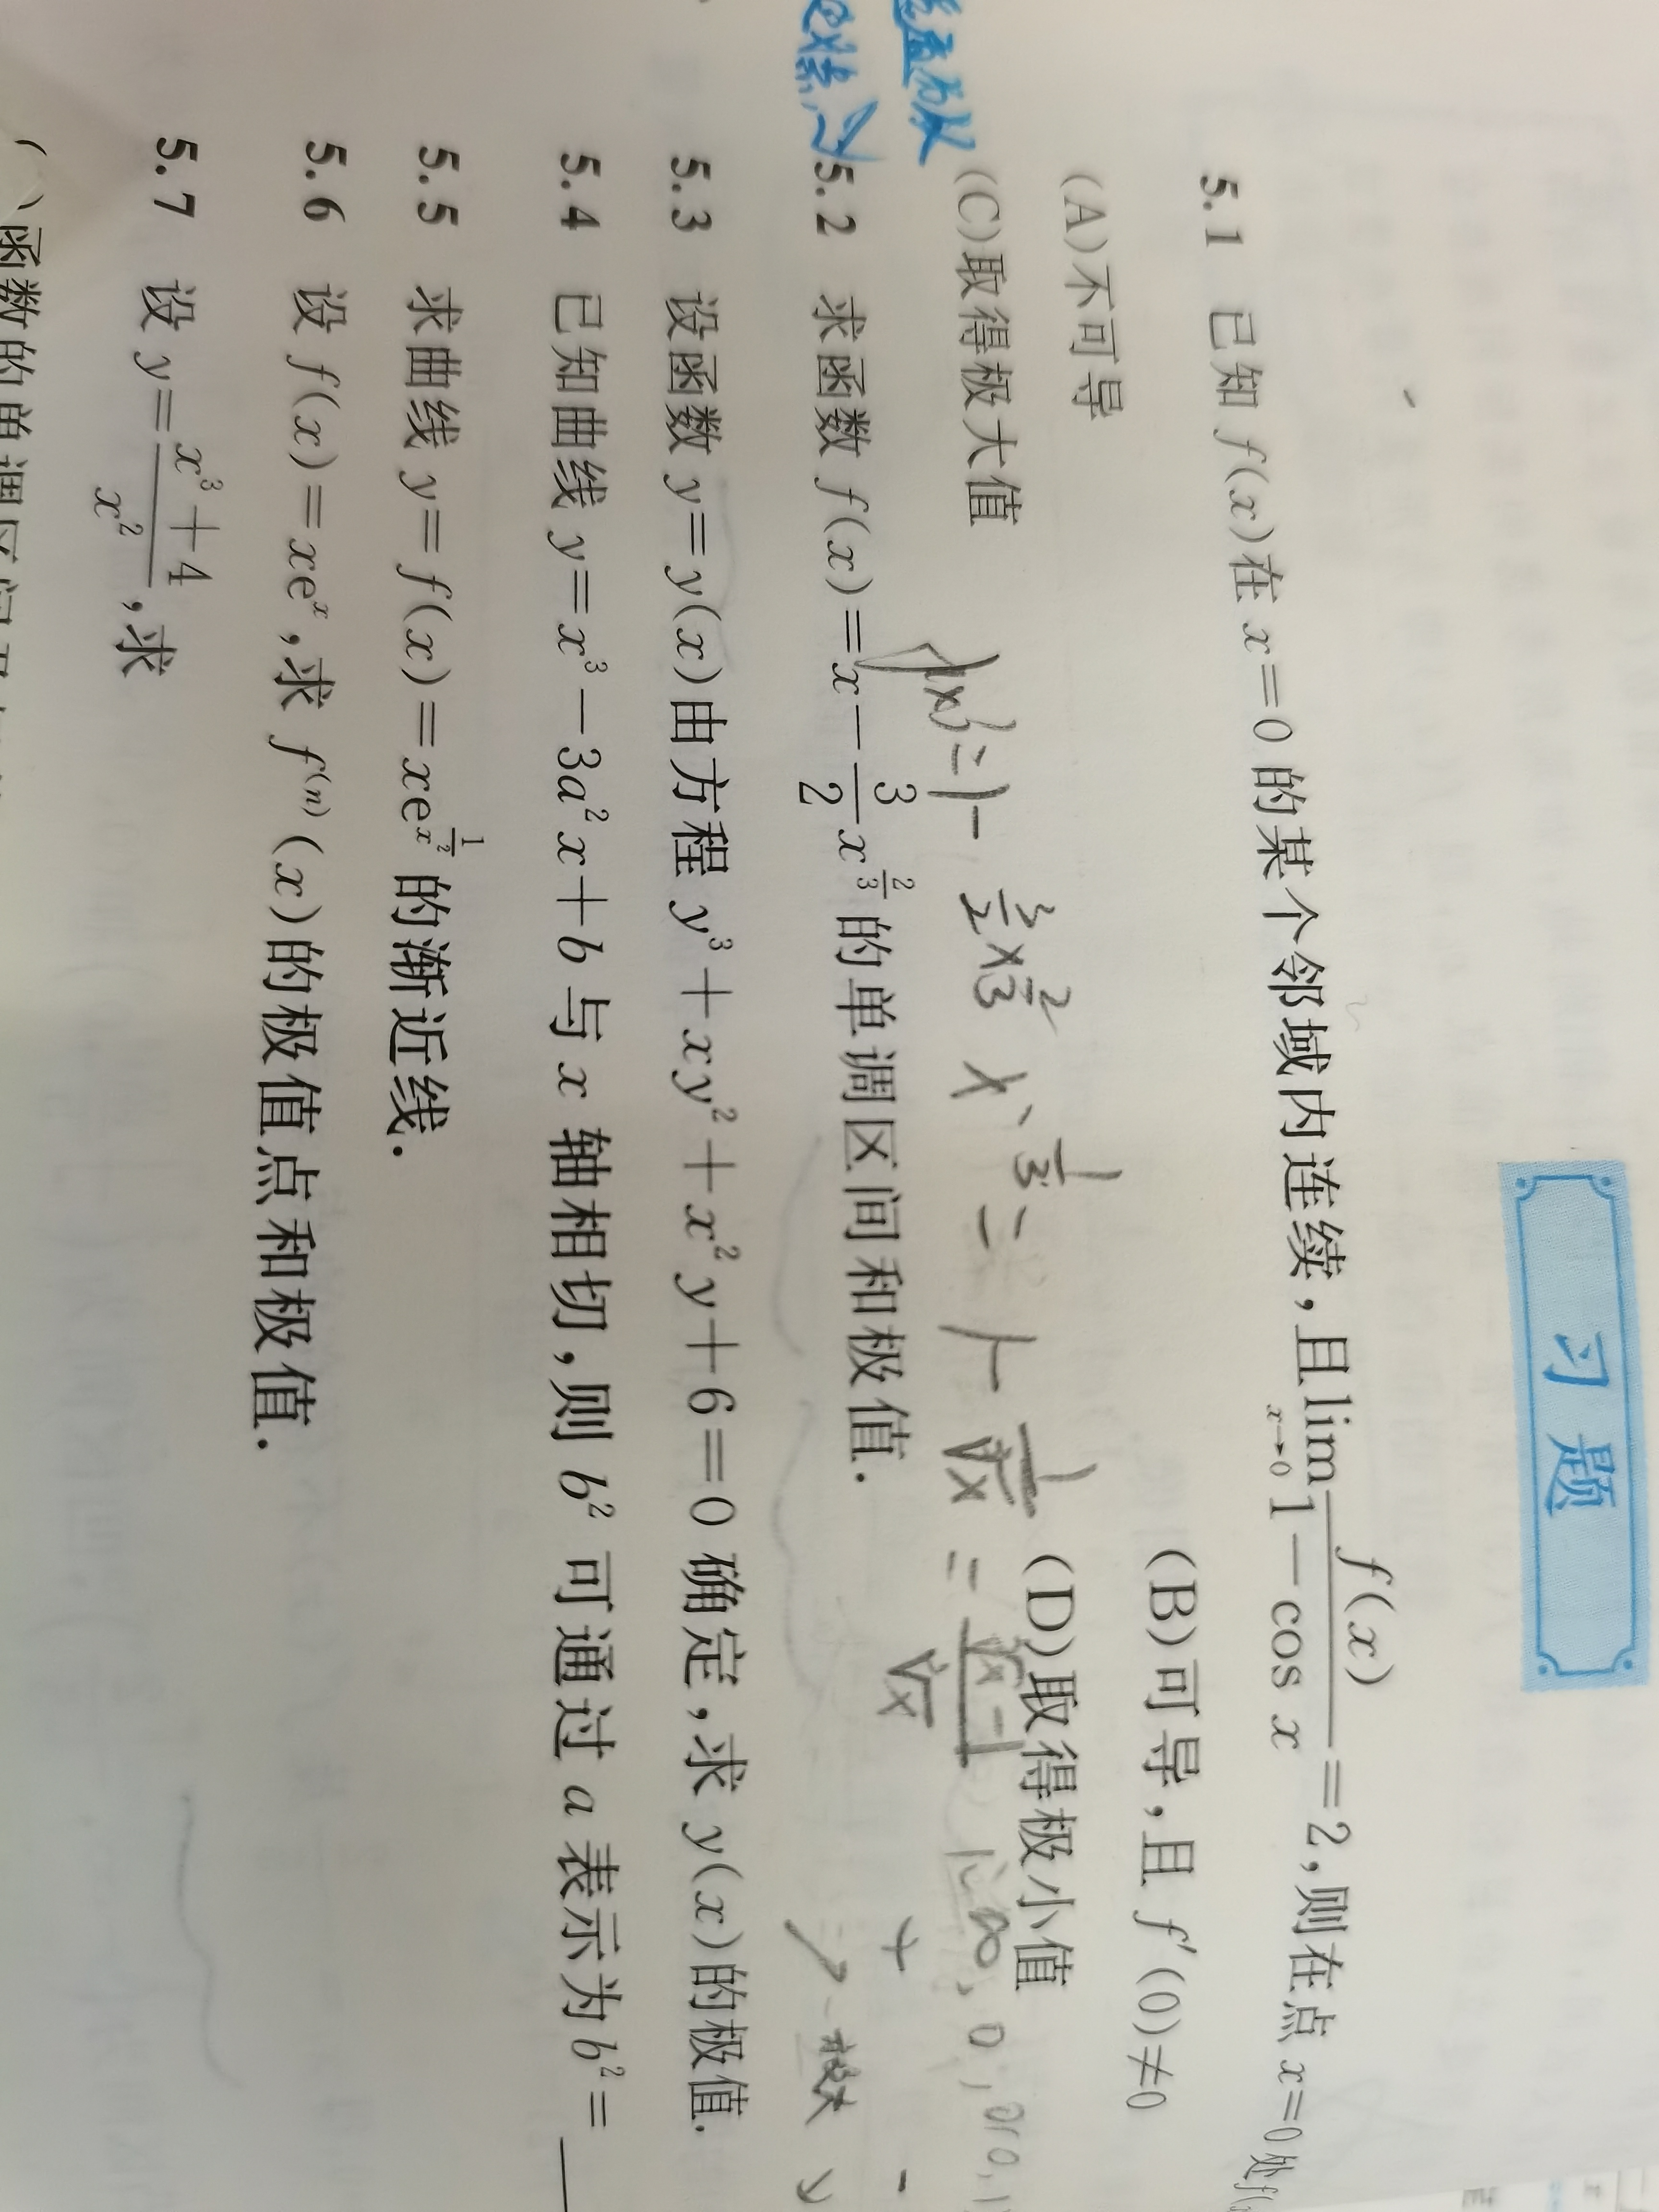 习题
5.1 已知 f(x)在 x=0 的某个邻域内连续,且$\lim_{x \to 0}\frac{f(x)}{1-\cos x}=2$,则在点 x=0 处 f(
(A)不可导 (B)可导,且 f′(0)≠0
(C)取得极大值 (D)取得极小值
$f(x)'=1-\frac{3}{2}\times\frac{2}{3}x^{-\frac{1}{3}}=1-\frac{1}{\sqrt[3]{x}}=\frac{\sqrt[3]{x}-1}{\sqrt[3]{x}}$
5.2 求函数 $f(x)=x-\frac{3}{2}x^{\frac{2}{3}}$的单调区间和极值.
5.3 设函数 y=y(x)由方程 $y^3+xy^2+x^2y+6=0$ 确定,求 y(x)的极值.
5.4 已知曲线 $y=x^3-3a^2x+b$ 与 x 轴相切,则 $b^2$ 可通过 a 表示为 $b^2=$____
5.5 求曲线 $y=f(x)=xe^{\frac{1}{x^2}}$的渐近线.
5.6 设 $f(x)=xe^x$,求 $f^{(n)}(x)$的极值点和极值.
5.7 设 $y=\frac{x^3+4}{x^2}$,求
函数的单调区间及